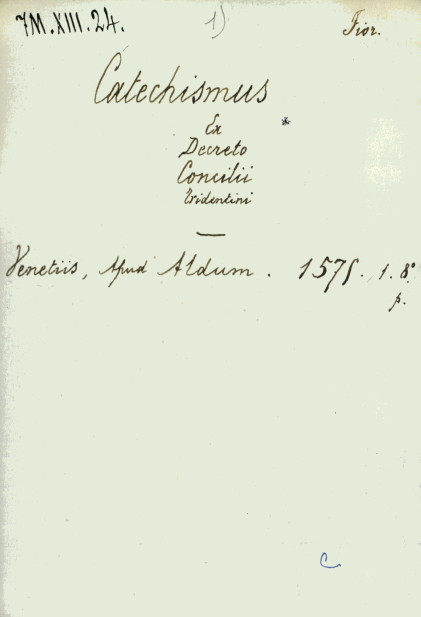 7M.XIII.24. 1) Fior.
Catechismus
Ex *
Decreto
Concilii
Tridentini
Venetiis, Apud Aldum. 1575. 1. 8°
p.
C